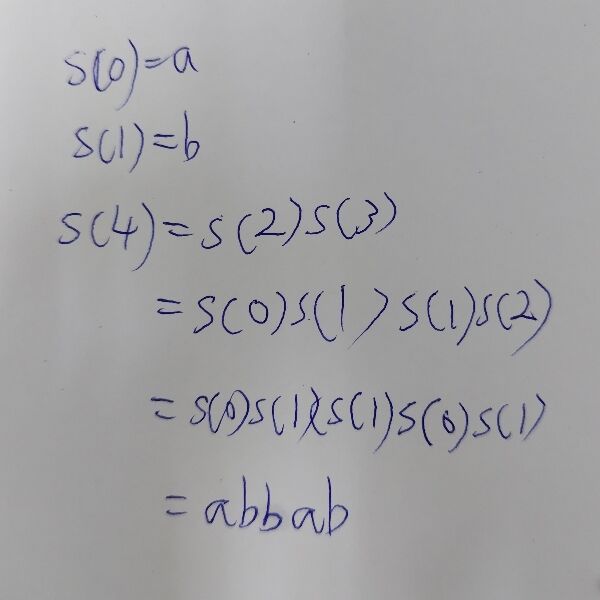 S(0)=a
S(1)=b
S(4)=S(2)S(3)
=S(0)S(1)S(1)S(2)
=S(0)S(1)S(1)S(0)S(1)
=abbab